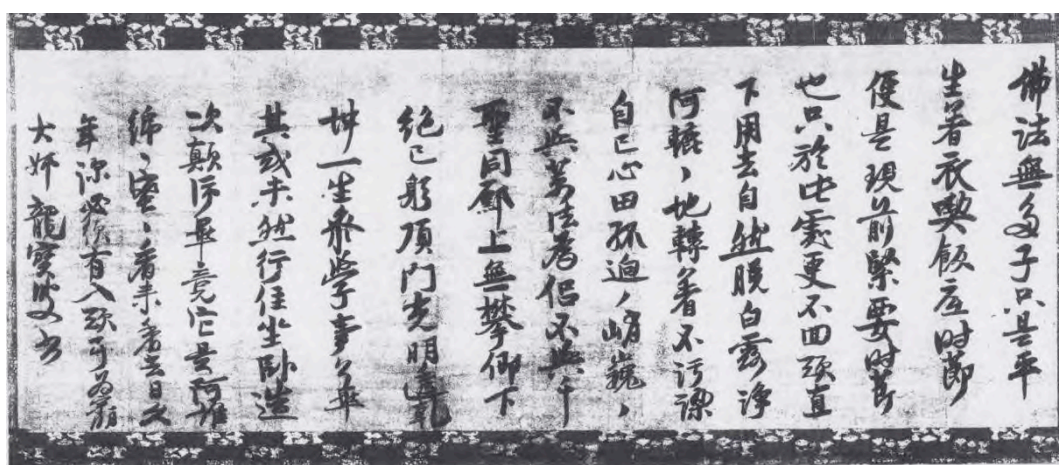 佛法無多子只是平
生着衣喫飯底時節
便是現前緊要時節
也只於此處更不回頭直
下用去自然脱白露淨
阿轆〻地轉着不污染
自己心田孤迥〻峭巍〻
不与萬法為侶不與千
聖同躔上無攀仰下
絶己躬頂門光明蓋乾
坤一生參學事畢
其或未然行住坐臥造
次顛沛畢竟它是阿誰
綿〻密〻看来看去日久
年深必須有入頭可為
大姉 龍寶 書